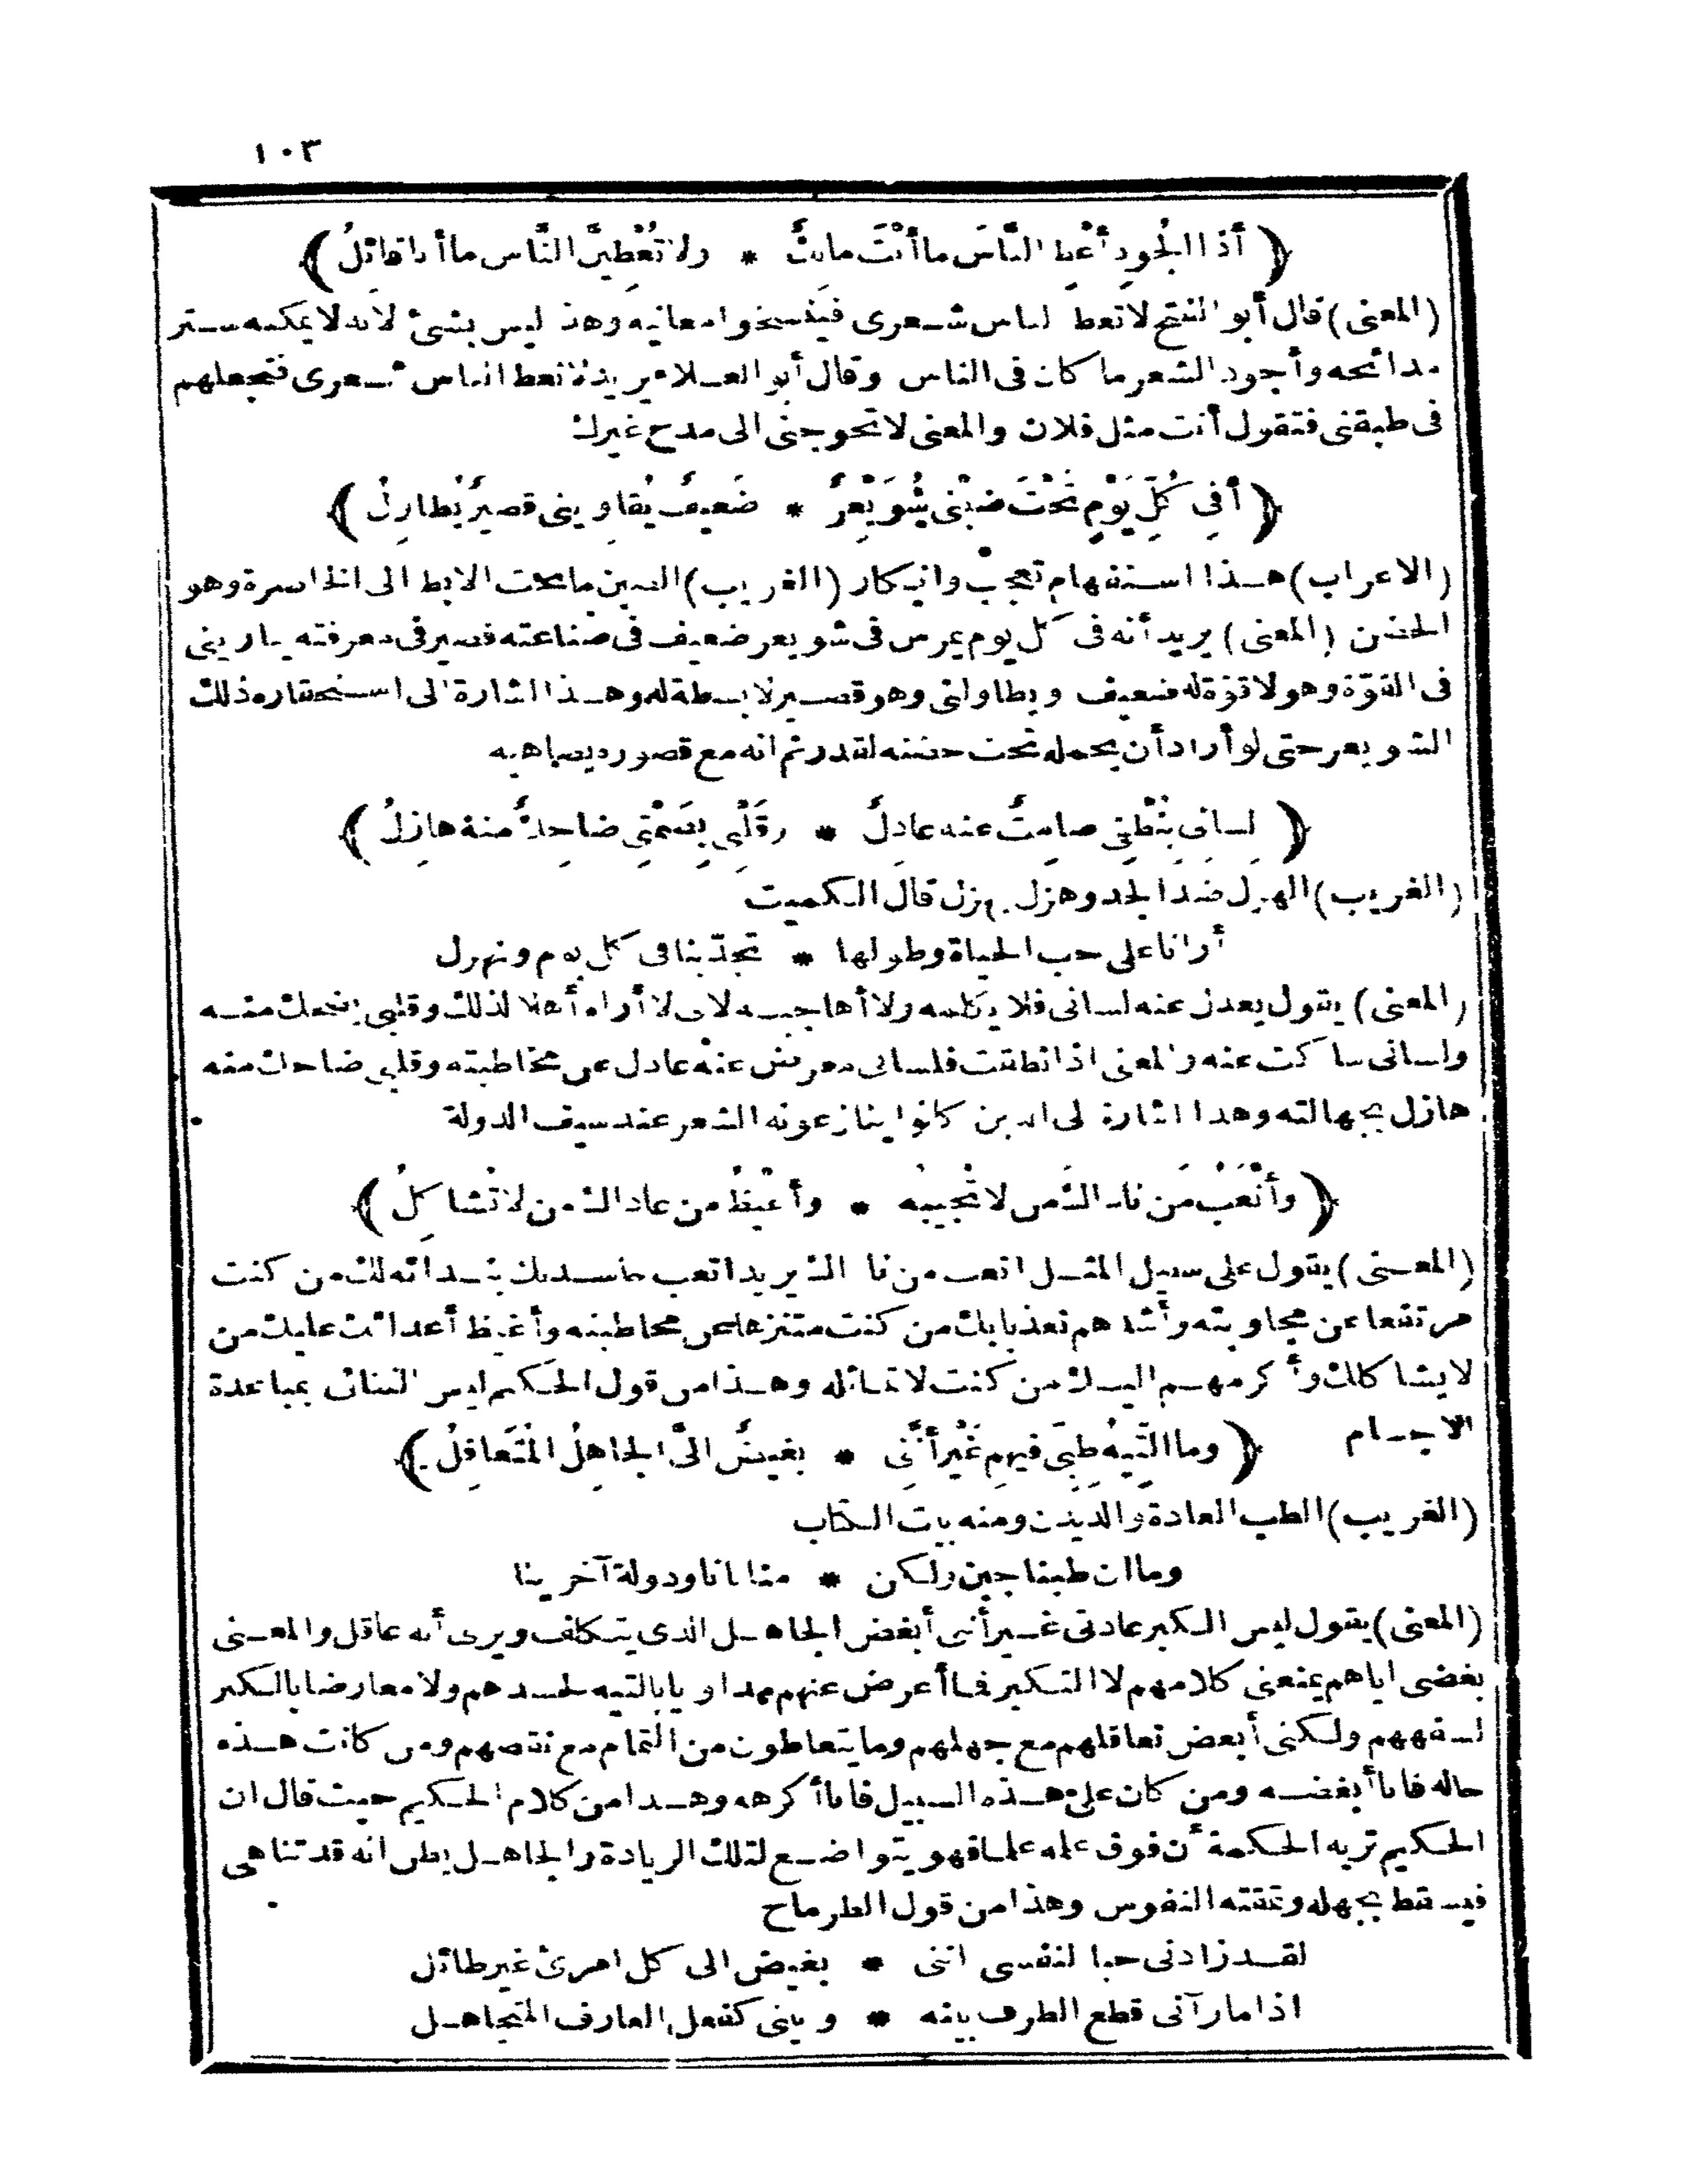 ١٠٣
﴿ أذا الجُودِ أعْطِ النَّاسَ ما أنْتَ مالِكٌ * ولا تُعْطِيَنَّ النَّاسَ ما أنا قائِلُ ﴾
(المعنى) قال أبو الفتح لا تعط الناس شعرى فينسخوا معانيه وهذا ليس بشئ لانه لا يمكنه ستر
مدائحه وأجود الشعر ما كان فى الناس وقال أبو العلاء يريد لا تعط الناس شعرى فتجعلهم
فى طبقتى فتقول أنت مثل فلان والمعنى لا تحوجنى الى مدح غيرك
﴿ أفِى كُلِّ يَوْمٍ تَحْتَ ضِبْنِى شُوَيْعِرٌ * ضَعِيفٌ يُقاوِينى قصيرٌ يُطاوِلُ ﴾
(الاعراب) هذا استفهام تعجب وانكار (الغريب) الضبن ما تحت الابط الى الخاصرة وهو
الحضن (المعنى) يريد أنه فى كل يوم يمرس فى شويعر ضعيف فى صناعته قصير فى معرفته يبارينى
فى القوّة وهو لا قوّة له ضعيف ويطاولنى وهو قصير لا بسطة له وهذا اشارة الى استحقاره ذلك
الشويعر حتى لو أراد أن يحمله تحت حضنه لقدر ثم انه مع قصوره يباهيه
﴿ لسانى بِنُطْقِى صامِتٌ عنه عادِلٌ * وقَلْبِى بِصَمْتِى ضاحِكٌ منهُ هازِلُ ﴾
(الغريب) الهزل ضد الجد وهزل يهزل قال الكميت
أرانا على حب الحياة وطولها * تجدّ بنا فى كل يوم ونهزل
(المعنى) يقول يعدل عنه لسانى فلا يكلمه ولا أهاجيه لانى لا أراه أهلا لذلك وقلبى يضحك منه
ولسانى ساكت عنه والمعنى اذا نطقت فلسانى معرض عنه عادل عن مخاطبته وقلبى ضاحك منه
هازل بجهالته وهذا اشارة الى الذين كانوا ينازعونه الشعر عند سيف الدولة
﴿ وأتْعَبُ مَن ناداكَ مَن لا تُجِيبُه * وأغْيَظُ من عاداكَ من لا تُشاكِلُ ﴾
(المعنى) يقول على سبيل المثل اتعب من ناداك يريد اتعب حاسديك بندائه لك من كنت
مرتفعا عن مجاوبته وأشدهم تعذيبا بك من كنت متنزها عن مخاطبته وأغيظ أعدائك عليك من
لا يشاكلك وأكرمهم اليك من كنت لا تماثله وهذا من قول الحكيم ليس التنائى بمباعدة
الاجسام ﴿ وما التِّيهُ طِبِّى فيهِمِ غَيْرَ أنَّنِى * بغيضٌ الىَّ الجاهِلُ المُتَعاقِلُ ﴾
(الغريب) الطب العادة والديدن ومنه بيت الكتاب
وما ان طبنا جبن ولكن * منايانا ودولة آخرينا
(المعنى) يقول ليس الكبر عادتى غير أننى أبغض الجاهل الذى يتكلف ويرى أنه عاقل والمعنى
بغضى اياهم يمنعنى كلامهم لا التكبر فما أعرض عنهم مداويا بالتيه لحسدهم ولا معارضا بالكبر
لسفههم ولكنى أبغض تعاقلهم مع جهلهم وما يتعاطون من التمام مع نقصهم ومن كانت هذه
حاله فانا أبغضه ومن كان على هذه السبيل فانا أكرهه وهذا من كلام الحكيم حيث قال ان
الحكيم تريه الحكمة أن فوق علمه علما فهو يتواضع لتلك الزيادة والجاهل يظن انه قد تناهى
فيسقط بجهله وتمقته النفوس وهذا من قول الطرماح
لقد زادنى حبا لنفسى اننى * بغيض الى كل امرئ غير طائل
اذا ما رآنى قطع الطرف بينه * وبينى كفعل العارف المتجاهل